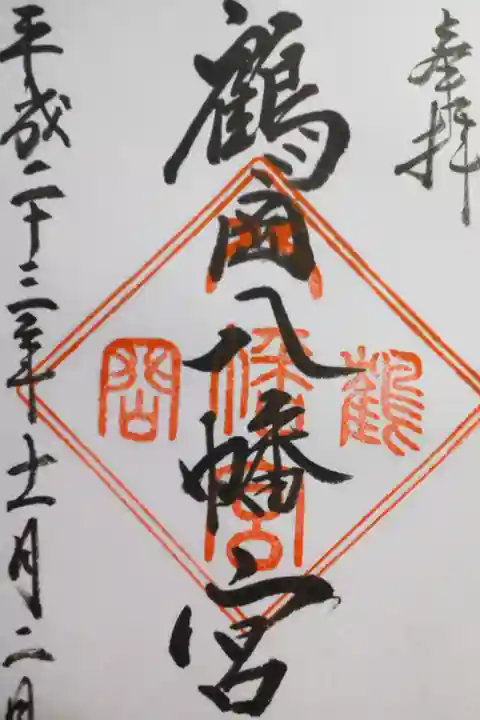 奉拝
鶴岡八幡宮
平成二十三年十一月二日
鶴
八幡宮
岡